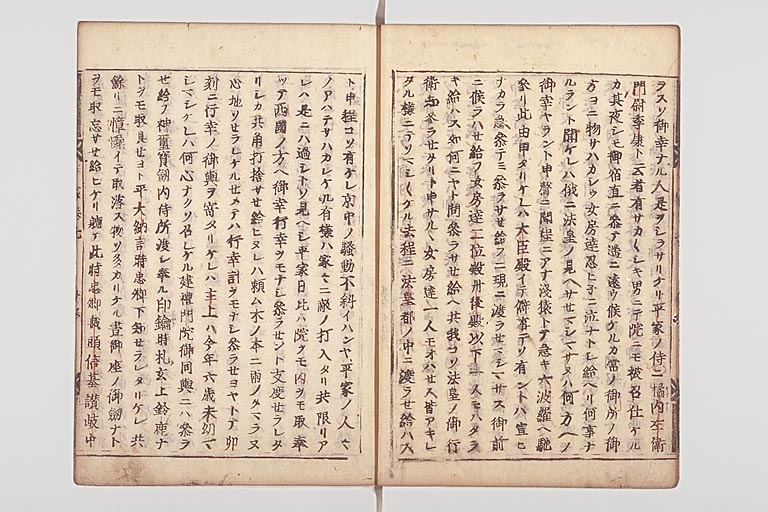 ラスソ御幸ナル人是ヲシラサリケリ平家ノ侍ニ橘内左衛
門尉季康ト云者有サカ〱シキ男ニテ院ニモ被召仕ケル
カ其夜シモ御宿直ニ参テ遥ニ遠ウ候ケルカ常ノ御所ノ御
方ヨニ物サハカシウ女房達忍ヒ子ニ泣ナトシ給ヘリ何事ナ
ルラント聞ケレハ俄ニ法皇ノ見ヘサセマシマサヌハ何方ヘノ
御幸ヤラント申声ニ聞程ニアナ浅猿トテ急キ六波羅ヘ馳
参リ此由申タリケレハ大臣殿イテ僻事テソ有ントハ宣ヒ
ナカラ急参テ見参ラセ給フニ現ニ渡ラセマシマサス御前
ニ候ラハせ給フ女房達二位殿丹後殿以下一人モハタラ
キ給ハス如何ニヤト問参ラサせ給ヘ共我コソ法皇ノ御行
衛知参ラせタリト申サルヽ女房達一人モオハせス皆アキレ
タル様ニテソマシ〱ケル去程ニ法皇都ノ中ニ渡ラせ給ハス
ト申程コソ有ケレ京中ノ騒動不斜イハンヤ平家ノ人々
ノアハテサハカレケル有様ハ家々ニ敵ノ打入タリ共限リア
レハ是ニハ過シトソ見ヘシ平家日比ハ院ヲモ内ヲモ取奉
ツテ西国ノ方ヘ御幸行幸ヲモナシ参ラせント支度せラレタ
リシカ共角打捨サせ給ヒヌレハ頼ム木ノ本ニ雨ノタマラヌ
心地ソせラレケルせメテハ行幸計ヲモナシ参ラせヨヤトテ卯
刻ニ行幸ノ御輿ヲ寄タリケレハ主上ハ今年六歳未幼マ
シマシケレハ何心ナウソ召レケル建礼門院御同輿ニハ参ラ
せ給フ神璽宝剱内侍所渡シ奉ル印鑰時札玄上鈴鹿ナ
トヲモ取具せヨト平大納言時忠卿下知せラレタリケレ共
餘リニ憧慄イテ取落ス物ソ多カリケル昼御座ノ御剱ナト
ヲモ取忘サせ給ヒケリ軈テ此時忠卿蔵頭信基讃岐中